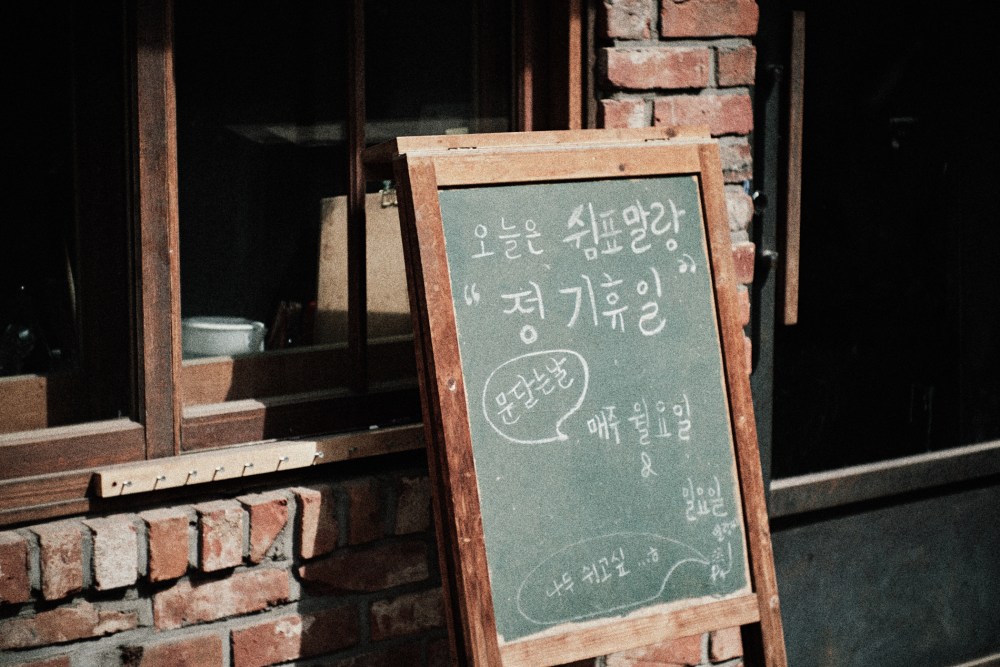 오늘은 쉼표말랑
“정기휴일”
문닫는날
매주 월요일
&
일요일
나두 쉬고싶...ㅎ